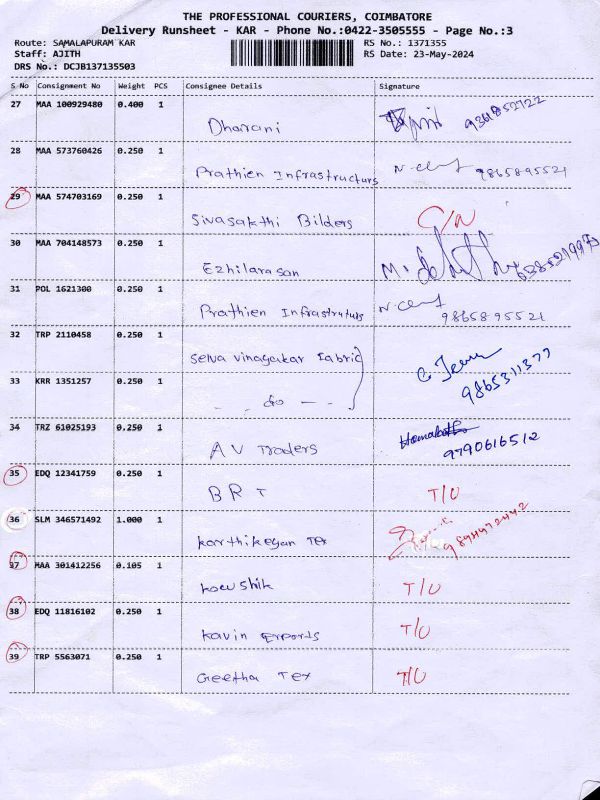 THE PROFESSIONAL COURIERS, COIMBATORE
Delivery Runsheet - KAR - Phone No.:0422-3505555 - Page No.:3
Route: SAMALAPURAM KAR RS No.: 1371355
Staff: AJITH RS Date: 23-May-2024
DRS No.: DCJB137135503
S No Consignment No Weight PCS Consignee Details Signature
27 MAA 100929480 0.400 1
Dharani 9361852722
28 MAA 573760426 0.250 1
Prathien Infrastructurs 9865895521
29 MAA 574703169 0.250 1
Sivasakthi Bilders C/N
30 MAA 704148573 0.250 1
Ezhilarasan
31 POL 1621300 0.250 1
Prathien Infrastruturs 9865895521
32 TRP 2110458 0.250 1
Selva vinayakar Fabric
33 KRR 1351257 0.250 1
- - do - - 9865311377
34 TRZ 61025193 0.250 1
AV Traders 9790616512
35 EDQ 12341759 0.250 1
BRT T/U
36 SLM 346571492 1.000 1
Karthikeyan Tex
37 MAA 301412256 0.105 1
Koushik T/U
38 EDQ 11816102 0.250 1
Kavin Exports T/U
39 TRP 5563071 0.250 1
Geetha Tex T/U